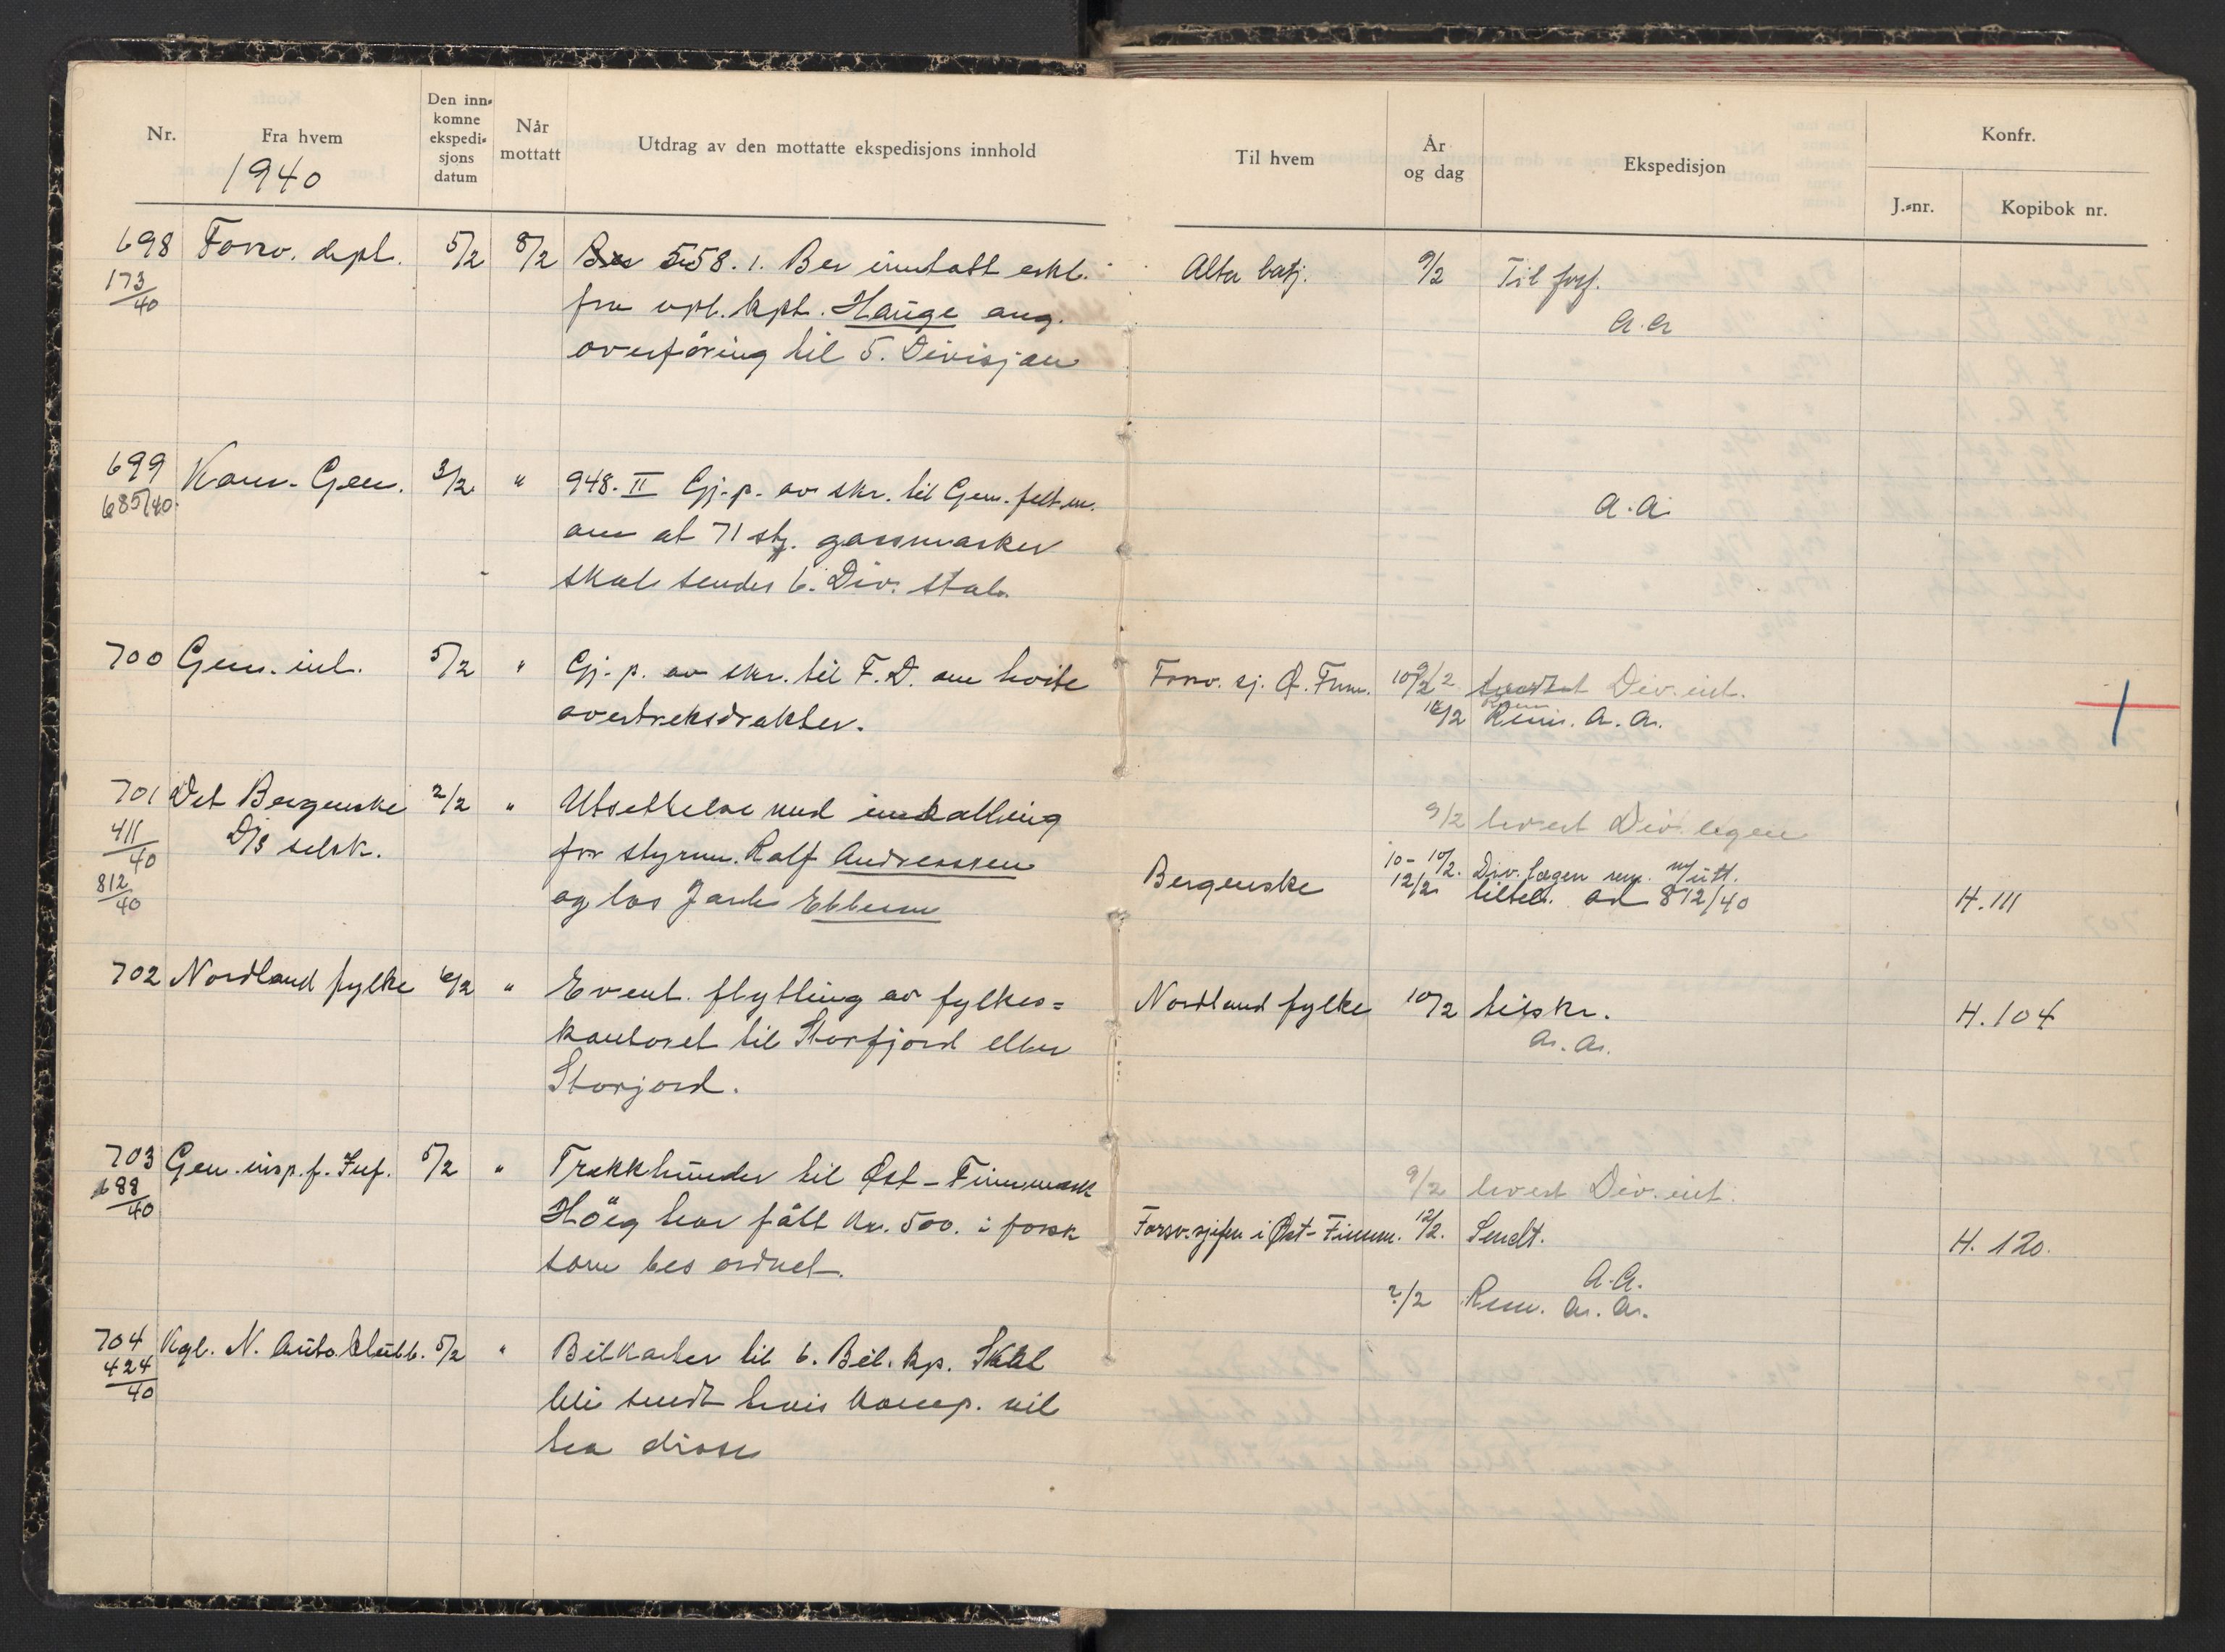 Nr.
Fra hvem
Den inn-
komne
ekspedi-
sjons
datum
Når
mottatt
Utdrag av den mottatte ekspedisjons innhold
Til hvem
År
og dag
Ekspedisjon
Konfr.
J.-nr.
Kopibok nr.
1940
698 Forsv. dept. 5/2 8/2 558. 1. Ber inntatt erkl. Alta batj. 9/2 Til forf.
173/40 fra vpl. kpt. Hauge ang. a.a
overföring til 5. Divisjon
699 Kom. Gen. 3/2 " 948. II Gj. p. av skr. til Gen. felt.m. a.a
685/40. om at 71 stk. gassmasker
skal sendes 6. Div. stab.
700 Gen. int. 5/2 " Gj. p. av skr. til F.D. om hvite Forsv. sj. Ø. Finm. 10/2 Div. int.
overtreksdrakter. Rem. a.a.
701 Det Bergenske 2/2 " Utsettelse med innkalling 9/2 levert Div. legen
411/40 D/S selsk. for styrm. Ralf Andreassen 10/2. Div. lægen m/ utt.
812/40 og los Jarle Ebbesen Bergenske 12/2 tiltelt. ad 812/40 H. 111
702 Nordland fylke 6/2 " Event. flytting av fylkes= Nordland fylke 10/2 tilskr. H. 104
kontoret til Storfjord eller a.a.
Storjord.
703 Gen. insp. f. Inf. 5/2 " Trekkhunder til Øst-Finnmark 9/2 levert Div. int.
688/40 Höeg har fått kr. 500. i forsk Forsv. sjefen i Øst-Finnm. 12/2. Sendt. H. 120.
som bes ordnet. a.a.
/2 Rem. a.a.
704 Kgl. N. Auto. klubb. 5/2 " Bilkarter til 6. Bil. kp. Skal
424/40 bli sendt hvis komp. vil
ha disse